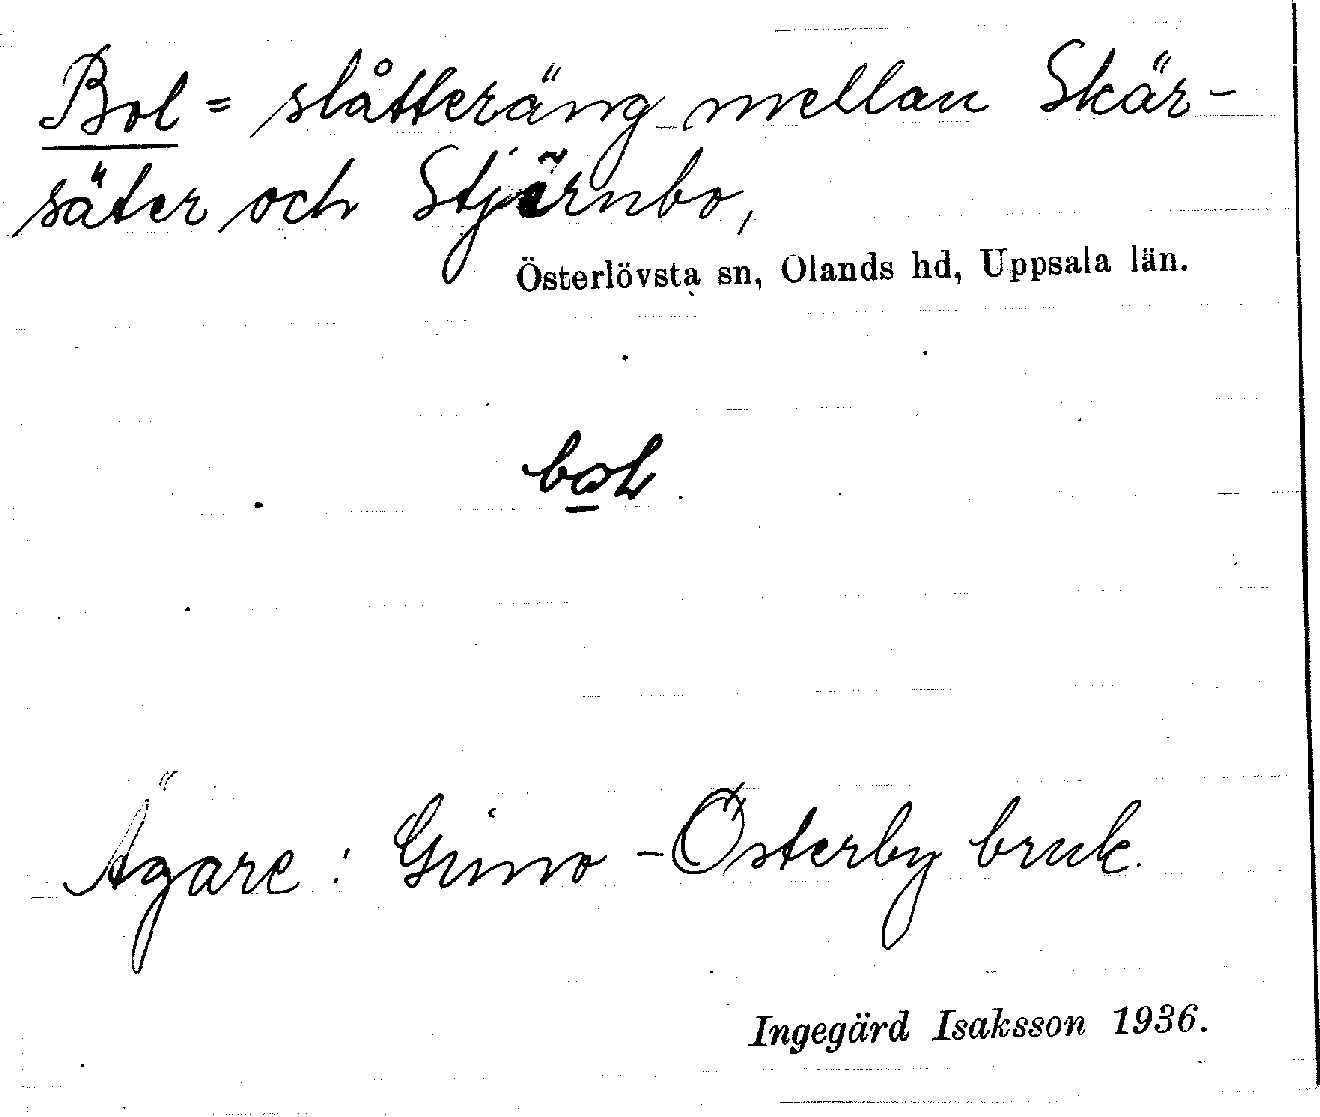 Bol = slåtteräng mellan Skär-
säter och Stjärnbo,
Österlövsta sn, Olands hd, Uppsala län.
Ägare: Gimo-Österby bruk.
Ingegärd Isaksson 1936.